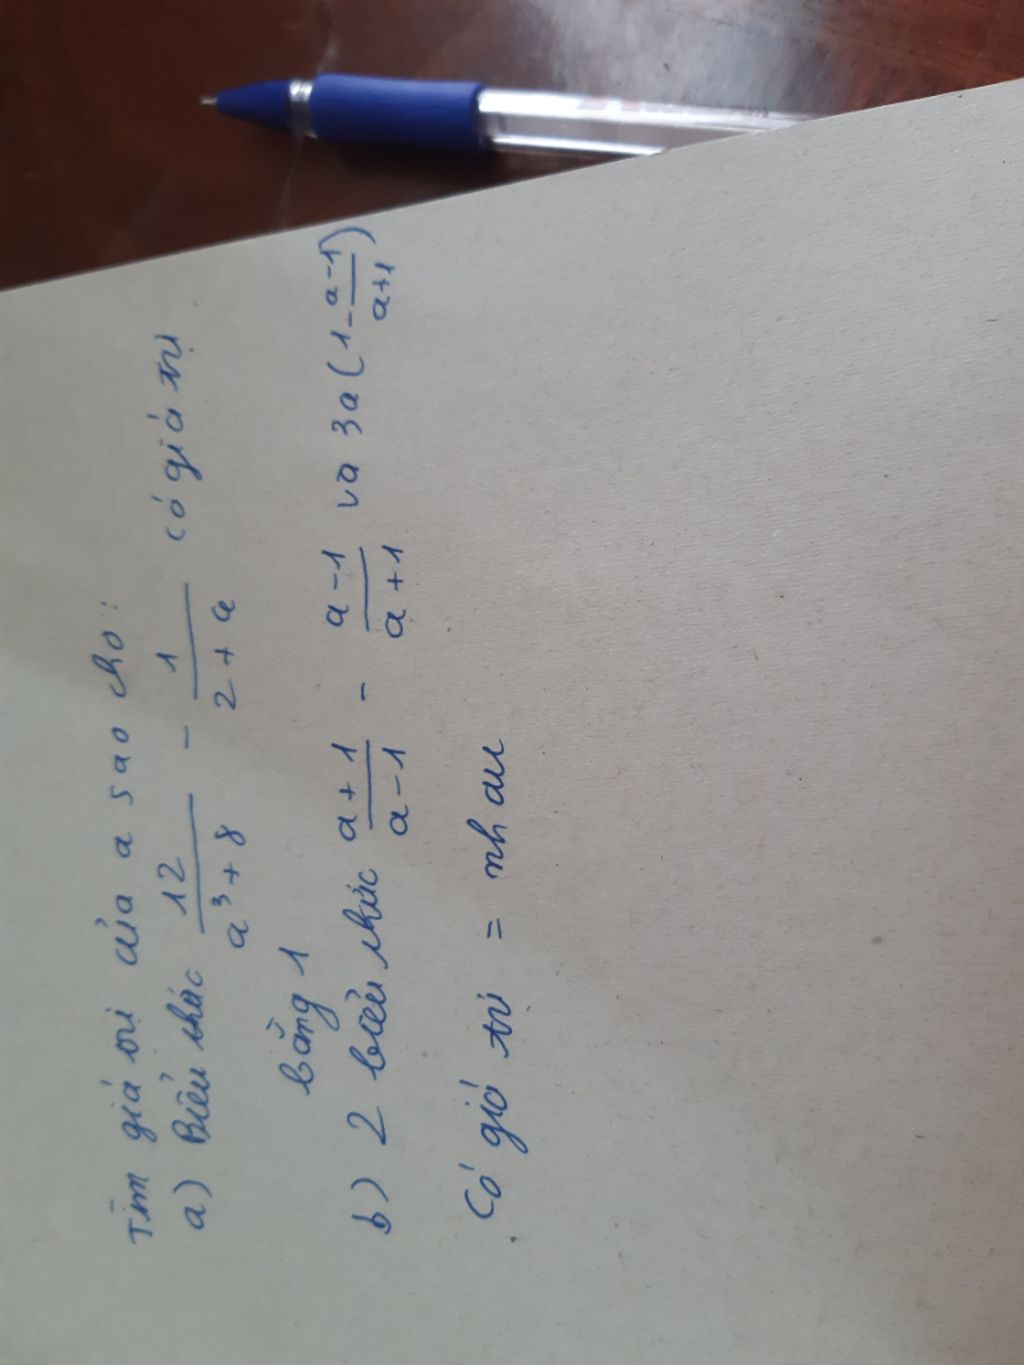 Tìm giá trị của a sao cho:
a) Biểu thức \frac{12}{a^3+8} - \frac{1}{2+a} có giá trị
bằng 1
b) 2 biểu thức \frac{a+1}{a-1} - \frac{a-1}{a+1} va 3a(1-\frac{a-1}{a+1})
Có gió trị = nhau